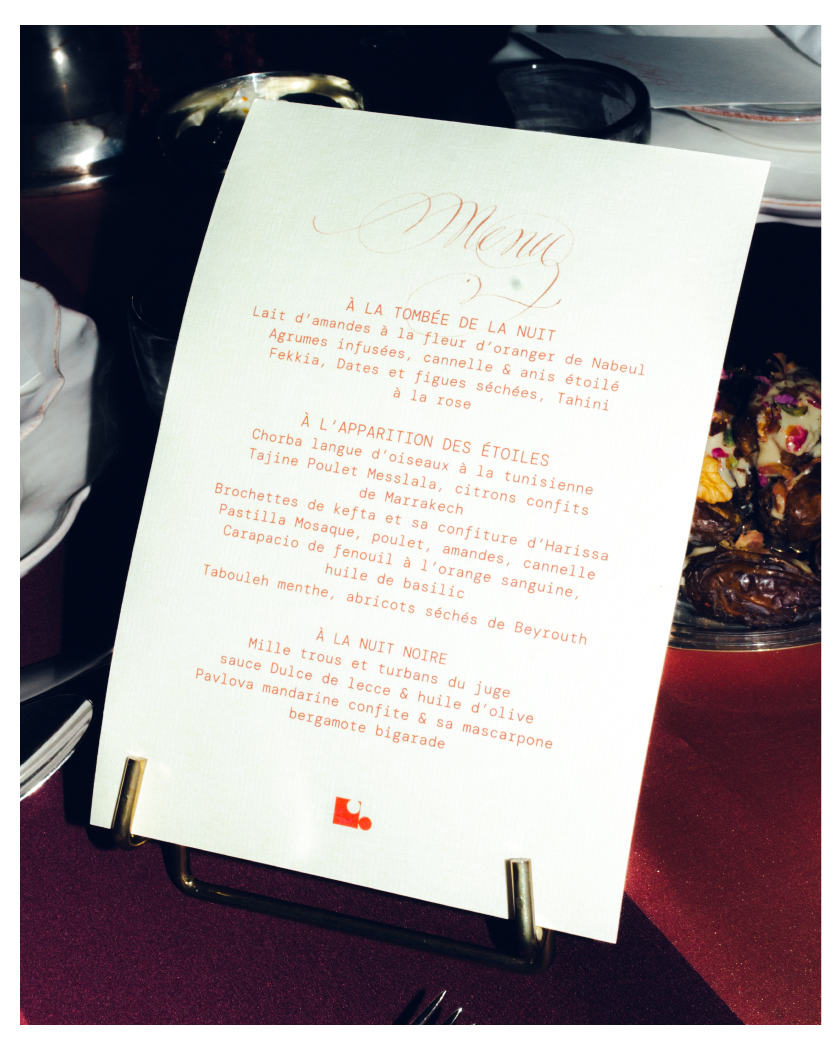 Menu
À LA TOMBÉE DE LA NUIT
Lait d’amandes à la fleur d’oranger de Nabeul
Agrumes infusées, cannelle & anis étoilé
Fekkia, Dates et figues séchées, Tahini
à la rose
À L’APPARITION DES ÉTOILES
Chorba langue d’oiseaux à la tunisienne
Tajine Poulet Messlala, citrons confits
de Marrakech
Brochettes de kefta et sa confiture d’Harissa
Pastilla Mosaque, poulet, amandes, cannelle
Carapacio de fenouil à l’orange sanguine,
huile de basilic
Tabouleh menthe, abricots séchés de Beyrouth
À LA NUIT NOIRE
Mille trous et turbans du juge
sauce Dulce de lecce & huile d’olive
Pavlova mandarine confite & sa mascarpone
bergamote bigarade